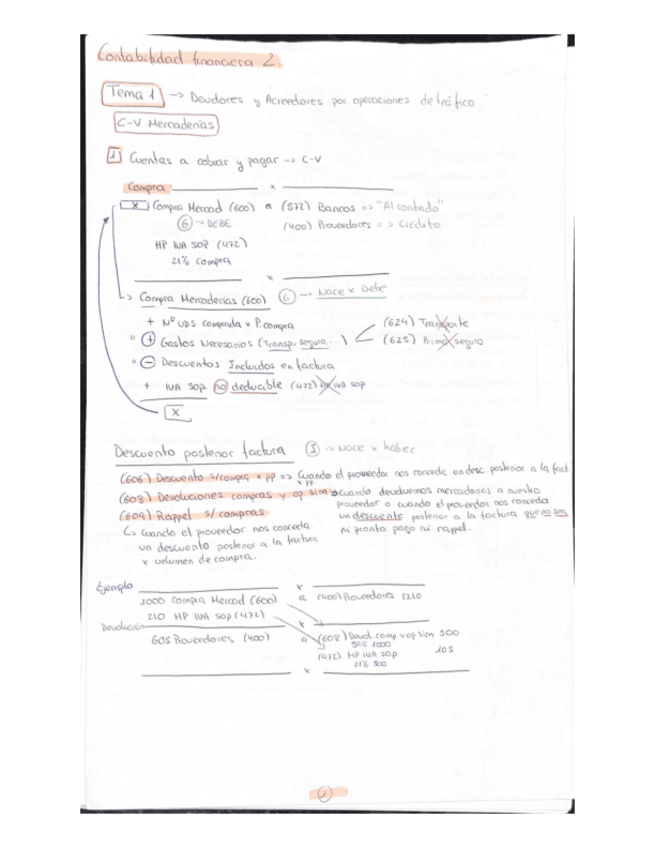 Contabilidad financiera 2
Tema 1 -> Deudores y Acreedores por operaciones de tráfico
C-V Mercaderías
1 Cuentas a cobrar y pagar -> C-V
Compra x
X Compra Mercad (600) a (572) Bancos => "Al contado"
6 -> DEBE (400) Proveedores => Crédito
HP IVA SOP (472)
21% Compra
x
Compra Mercaderías (600) 6 -> Nace x Debe
+ Nº UDS comprada x P. compra
" + Gastos Necesarios (Transp, seguro..) (624) Transporte
(625) Prima seguro
" - Descuentos Incluidos en factura
+ IVA SOP no deducible (472) HP IVA SOP
X
Descuento posterior factura I -> Nace x haber
(606) Descuento s/compra x pp => Cuando el proveedor nos concede un desc. posterior a la fact
x pp.
(608) Devoluciones compras y op. sim cuando devolvemos mercaderías a nuestro
proveedor o cuando el proveedor nos conceda
(609) Rappel s/ compras
un descuento posterior a la factura que no sea
ni pronto pago ni rappel.
Cuando el proveedor nos conceda
un descuento posterior a la factura
x volumen de compra.
Ejemplo x
1000 Compra Mercad (600) a (400) Proveedores 1210
210 HP IVA SOP (472)
Devolución x
605 Proveedores (400) a (608) Devol. comp y op sim 500
50% 1000
(472) HP IVA SOP 105
21% 500
x